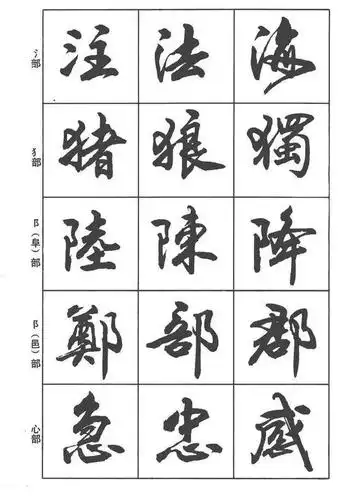 氵部 注 法 海
犭部 猪 狼 獨
阝(阜)部 陸 陳 降
阝(邑)部 鄭 部 郡
心部 急 忠 感